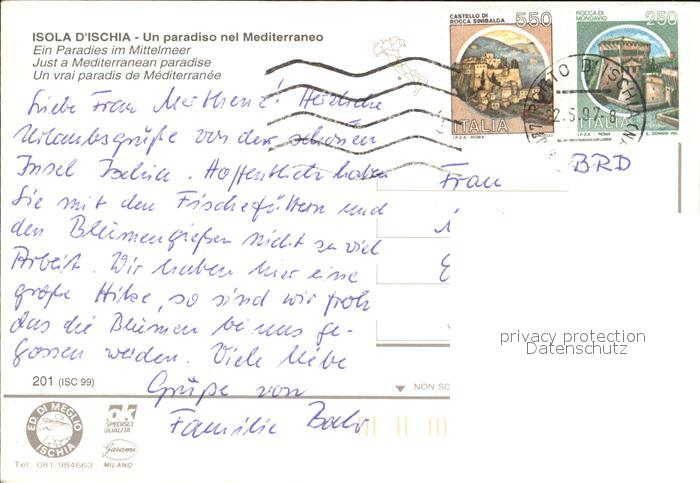 ISOLA D'ISCHIA - Un paradiso nel Mediterraneo
Ein Paradies im Mittelmeer
Just a Mediterranean paradise
Un vrai paradis de Méditerranée
CASTELLO DI ROCCA SINIBALDA
550
ITALIA
I.P.Z.S. - ROMA
ROCCA DI MONDAVIO
250
ITALIA
I.P.Z.S. - ROMA
D'ISCHIA
2.5.97-8
Liebe Frau! Herzliche
Urlaubsgrüße von der schönen
Insel Ischia. Hoffentlich haben
Sie mit den Fischefüttern und
den Blumengießen nicht so viel
Arbeit. Wir haben hier eine
große Hitze, so sind wir froh
das die Blumen bei uns ge-
gossen werden. Viele liebe
Grüße von
Familie
Frau
BRD
privacy protection
Datenschutz
201 (ISC 99)
NON SC
ED. DI MEGLIO
ISCHIA
Tel. 081/984663
ok
SPEDISCI QUALITÀ
Garami
MILANO